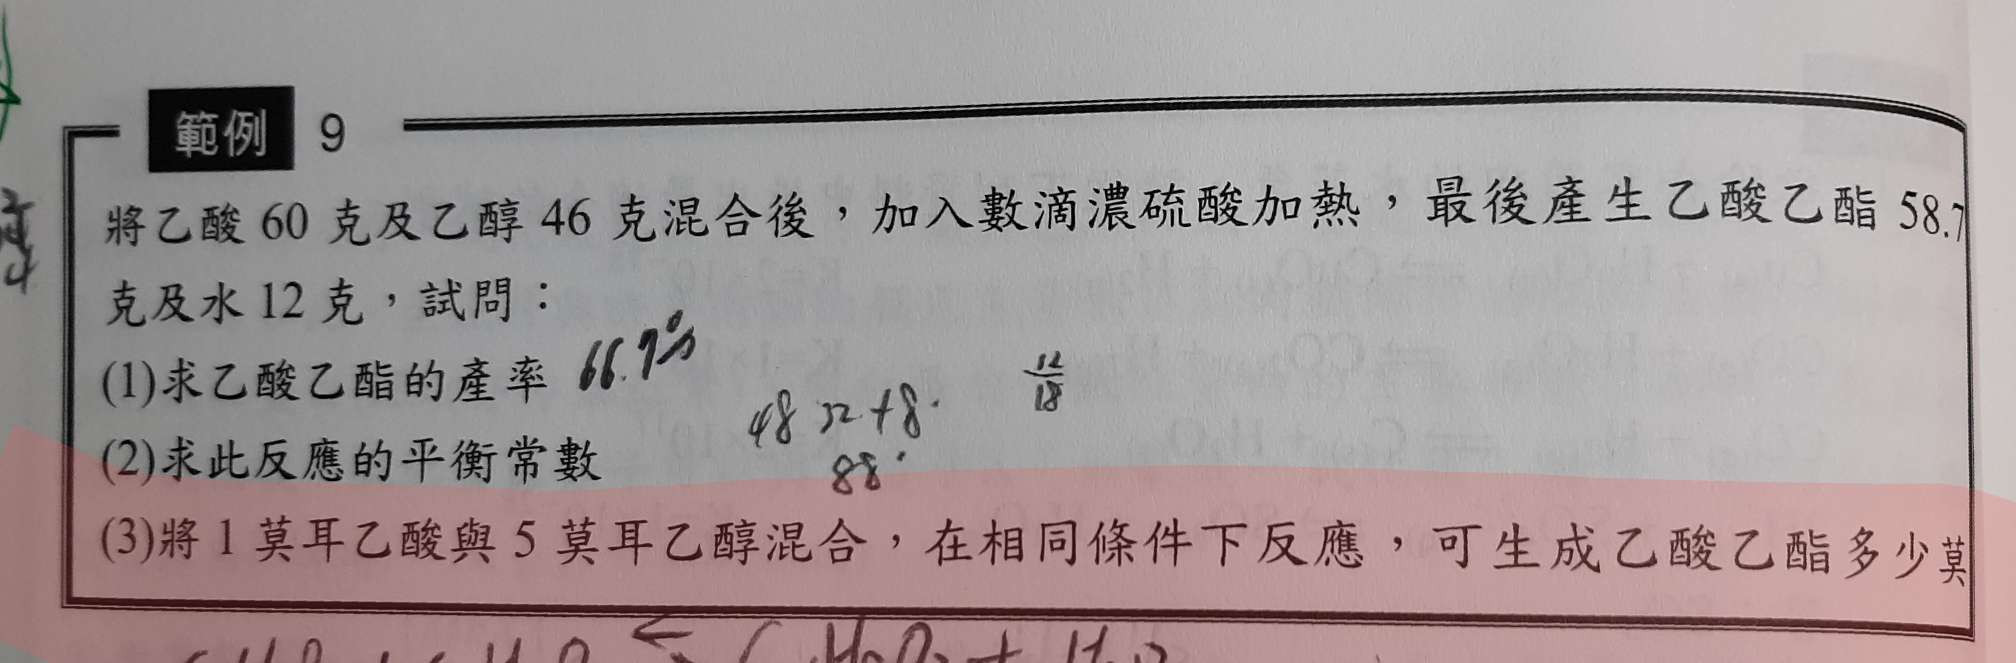 範例 9
將乙酸 60 克及乙醇 46 克混合後，加入數滴濃硫酸加熱，最後產生乙酸乙酯 58.7
克及水 12 克，試問：
(1)求乙酸乙酯的產率 66.7%
12/18
48 32+8.
(2)求此反應的平衡常數
88.
(3)將 1 莫耳乙酸與 5 莫耳乙醇混合，在相同條件下反應，可生成乙酸乙酯多少莫